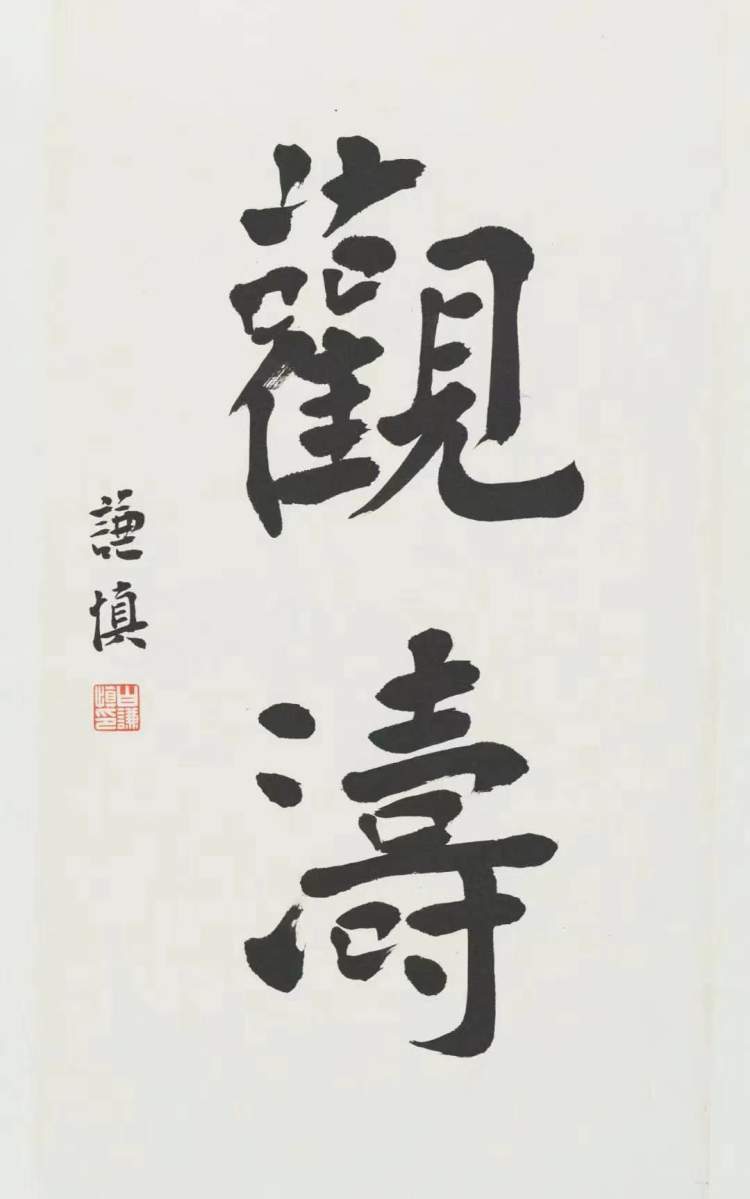 觀濤
謙慎
白謙慎印